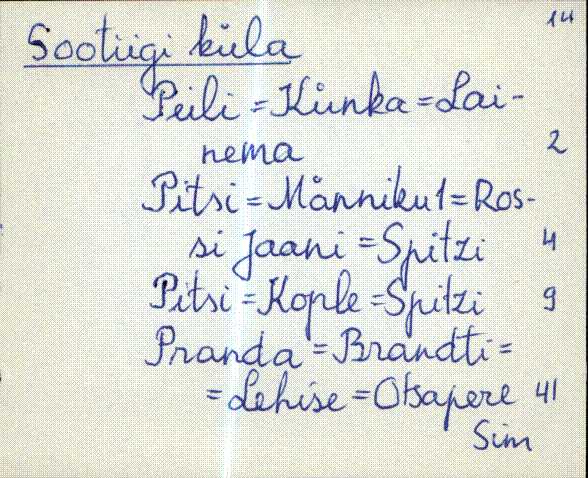 14
Sootüigi küla
Peili = Künka = Lai-
nema 2
Pitsi = Männiku 1 = Ros-
si Jaani = Spitzi 4
Pitsi = Kople = Spitzi 9
Pranda = Brandti =
= Lehise = Otsapere 41
Sim